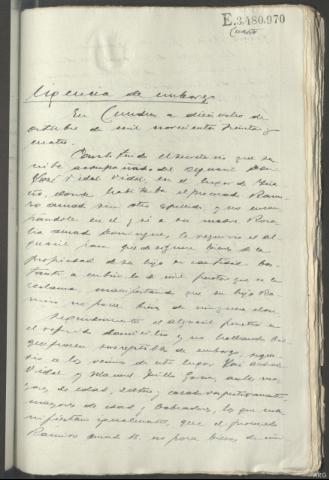 E.3.480.970
Cuarto
Diligencia de embargo
En Cuntis a dieciocho de
octubre de mil novecientos treinta y
cuatro.
Constituido el secretario que sus-
cribe acompañado del alguacil Don
José Vidal Vidal, en el lugar de
donde habitaba el procesado Rami-
ro Amad sin otro apellido, y no encon-
trándole en él y sí a su madre Rosa-
lia Amad Domínguez, la requirió el al-
guacil para que designe bienes de la
propiedad de su hijo en cantidad bas-
tante a cubrir la mil pesetas que se le
reclama, manifestando que su hijo Ra-
miro no posee bienes de ninguna clase.
Seguidamente el alguacil
el referido domicilio y no hallando en
que puedan susceptibles de embargo, requi-
rió a los vecinos de este lugar José
Vidal y Manuel
de edad, y casado respectivamente
mayores de edad y labradores, los que ma-
nifiestan igualmente, que el procesado
Ramiro Amad, no posee bienes de nin-